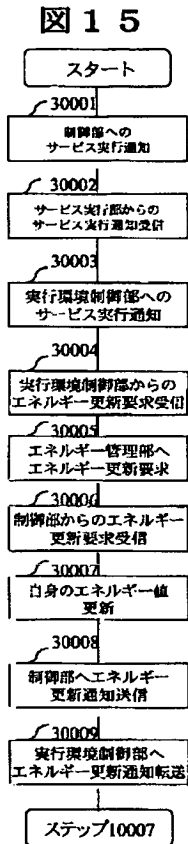 図１５
スタート
30001
制御部への
サービス実行通知
30002
サービス実行部からの
サービス実行通知受信
30003
実行環境制御部への
サービス実行通知
30004
実行環境制御部からの
エネルギー更新要求受信
30005
エネルギー管理部へ
エネルギー更新要求
30006
制御部からのエネルギー
更新要求受信
30007
自身のエネルギー値
更新
30008
制御部へエネルギー
更新通知送信
30009
実行環境制御部へ
エネルギー更新通知転送
ステップ10007